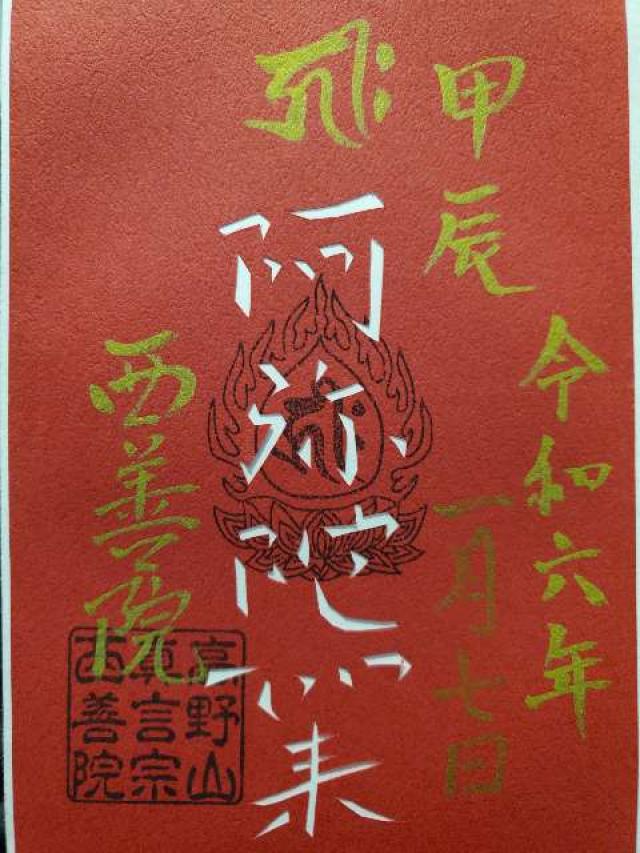 甲辰
令和六年
一月七日
𑖮𑖿𑖨𑖱𑖾
阿弥陀如来
𑖮𑖿𑖨𑖱𑖾
西善院
高野山
真言宗
西善院